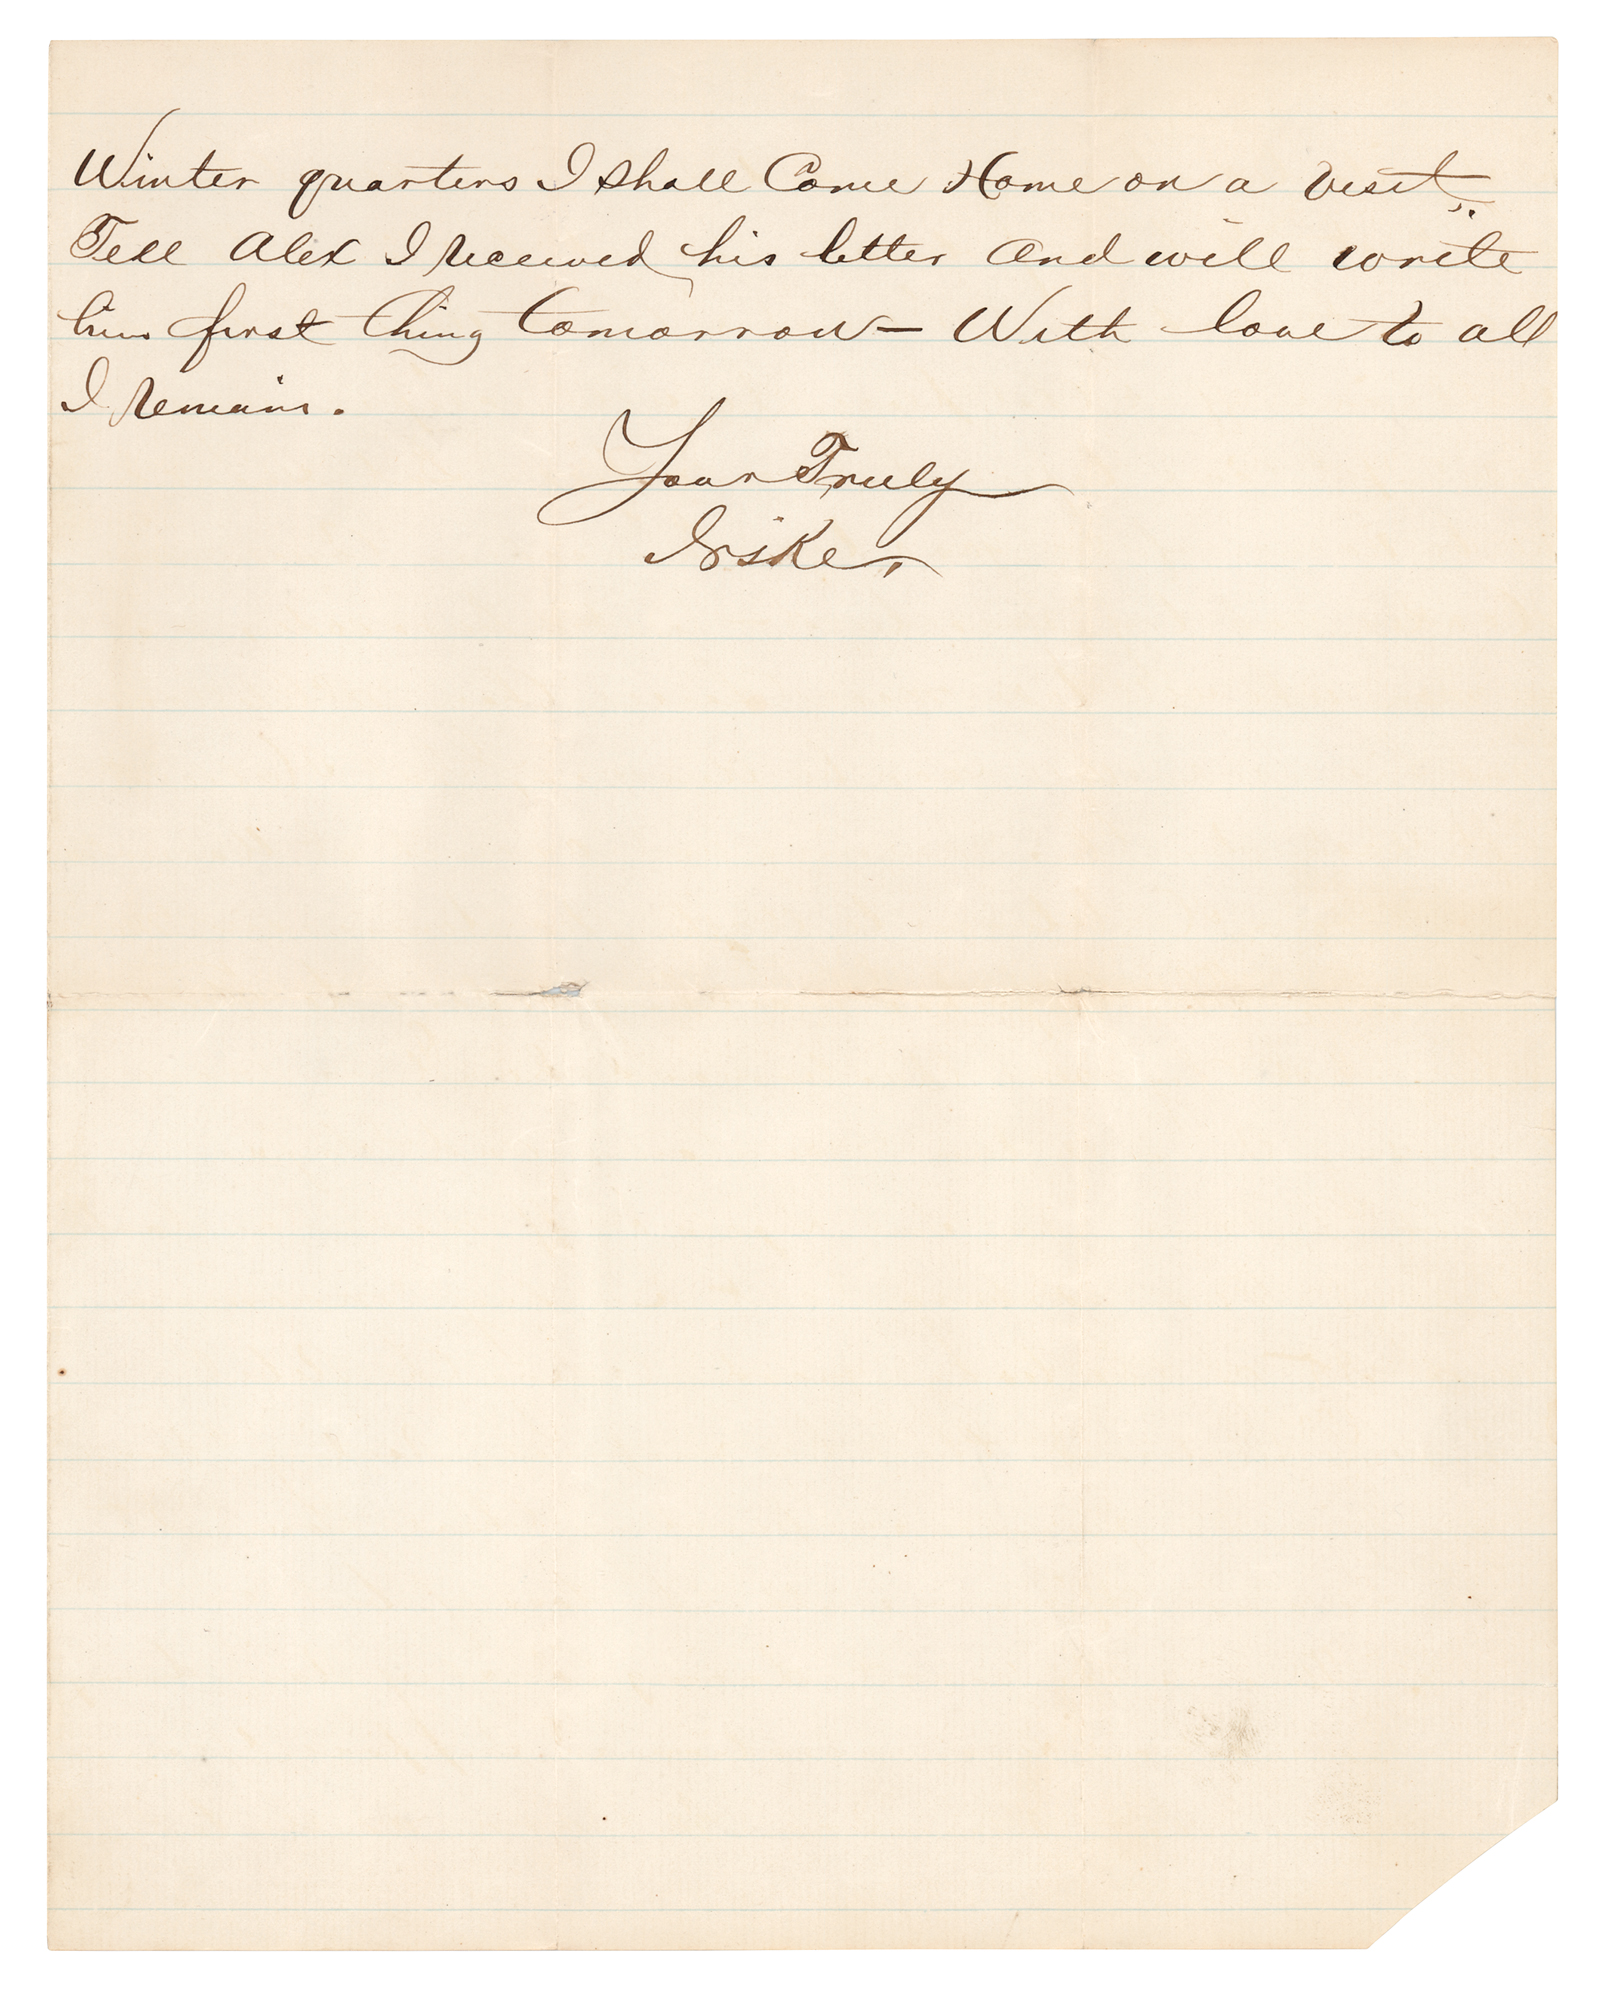 Winter quarters I shall Come Home on a visit.
Tell Alex I received his letter and will write
him first thing tomorrow — With love to all
I remain.
Your Truly